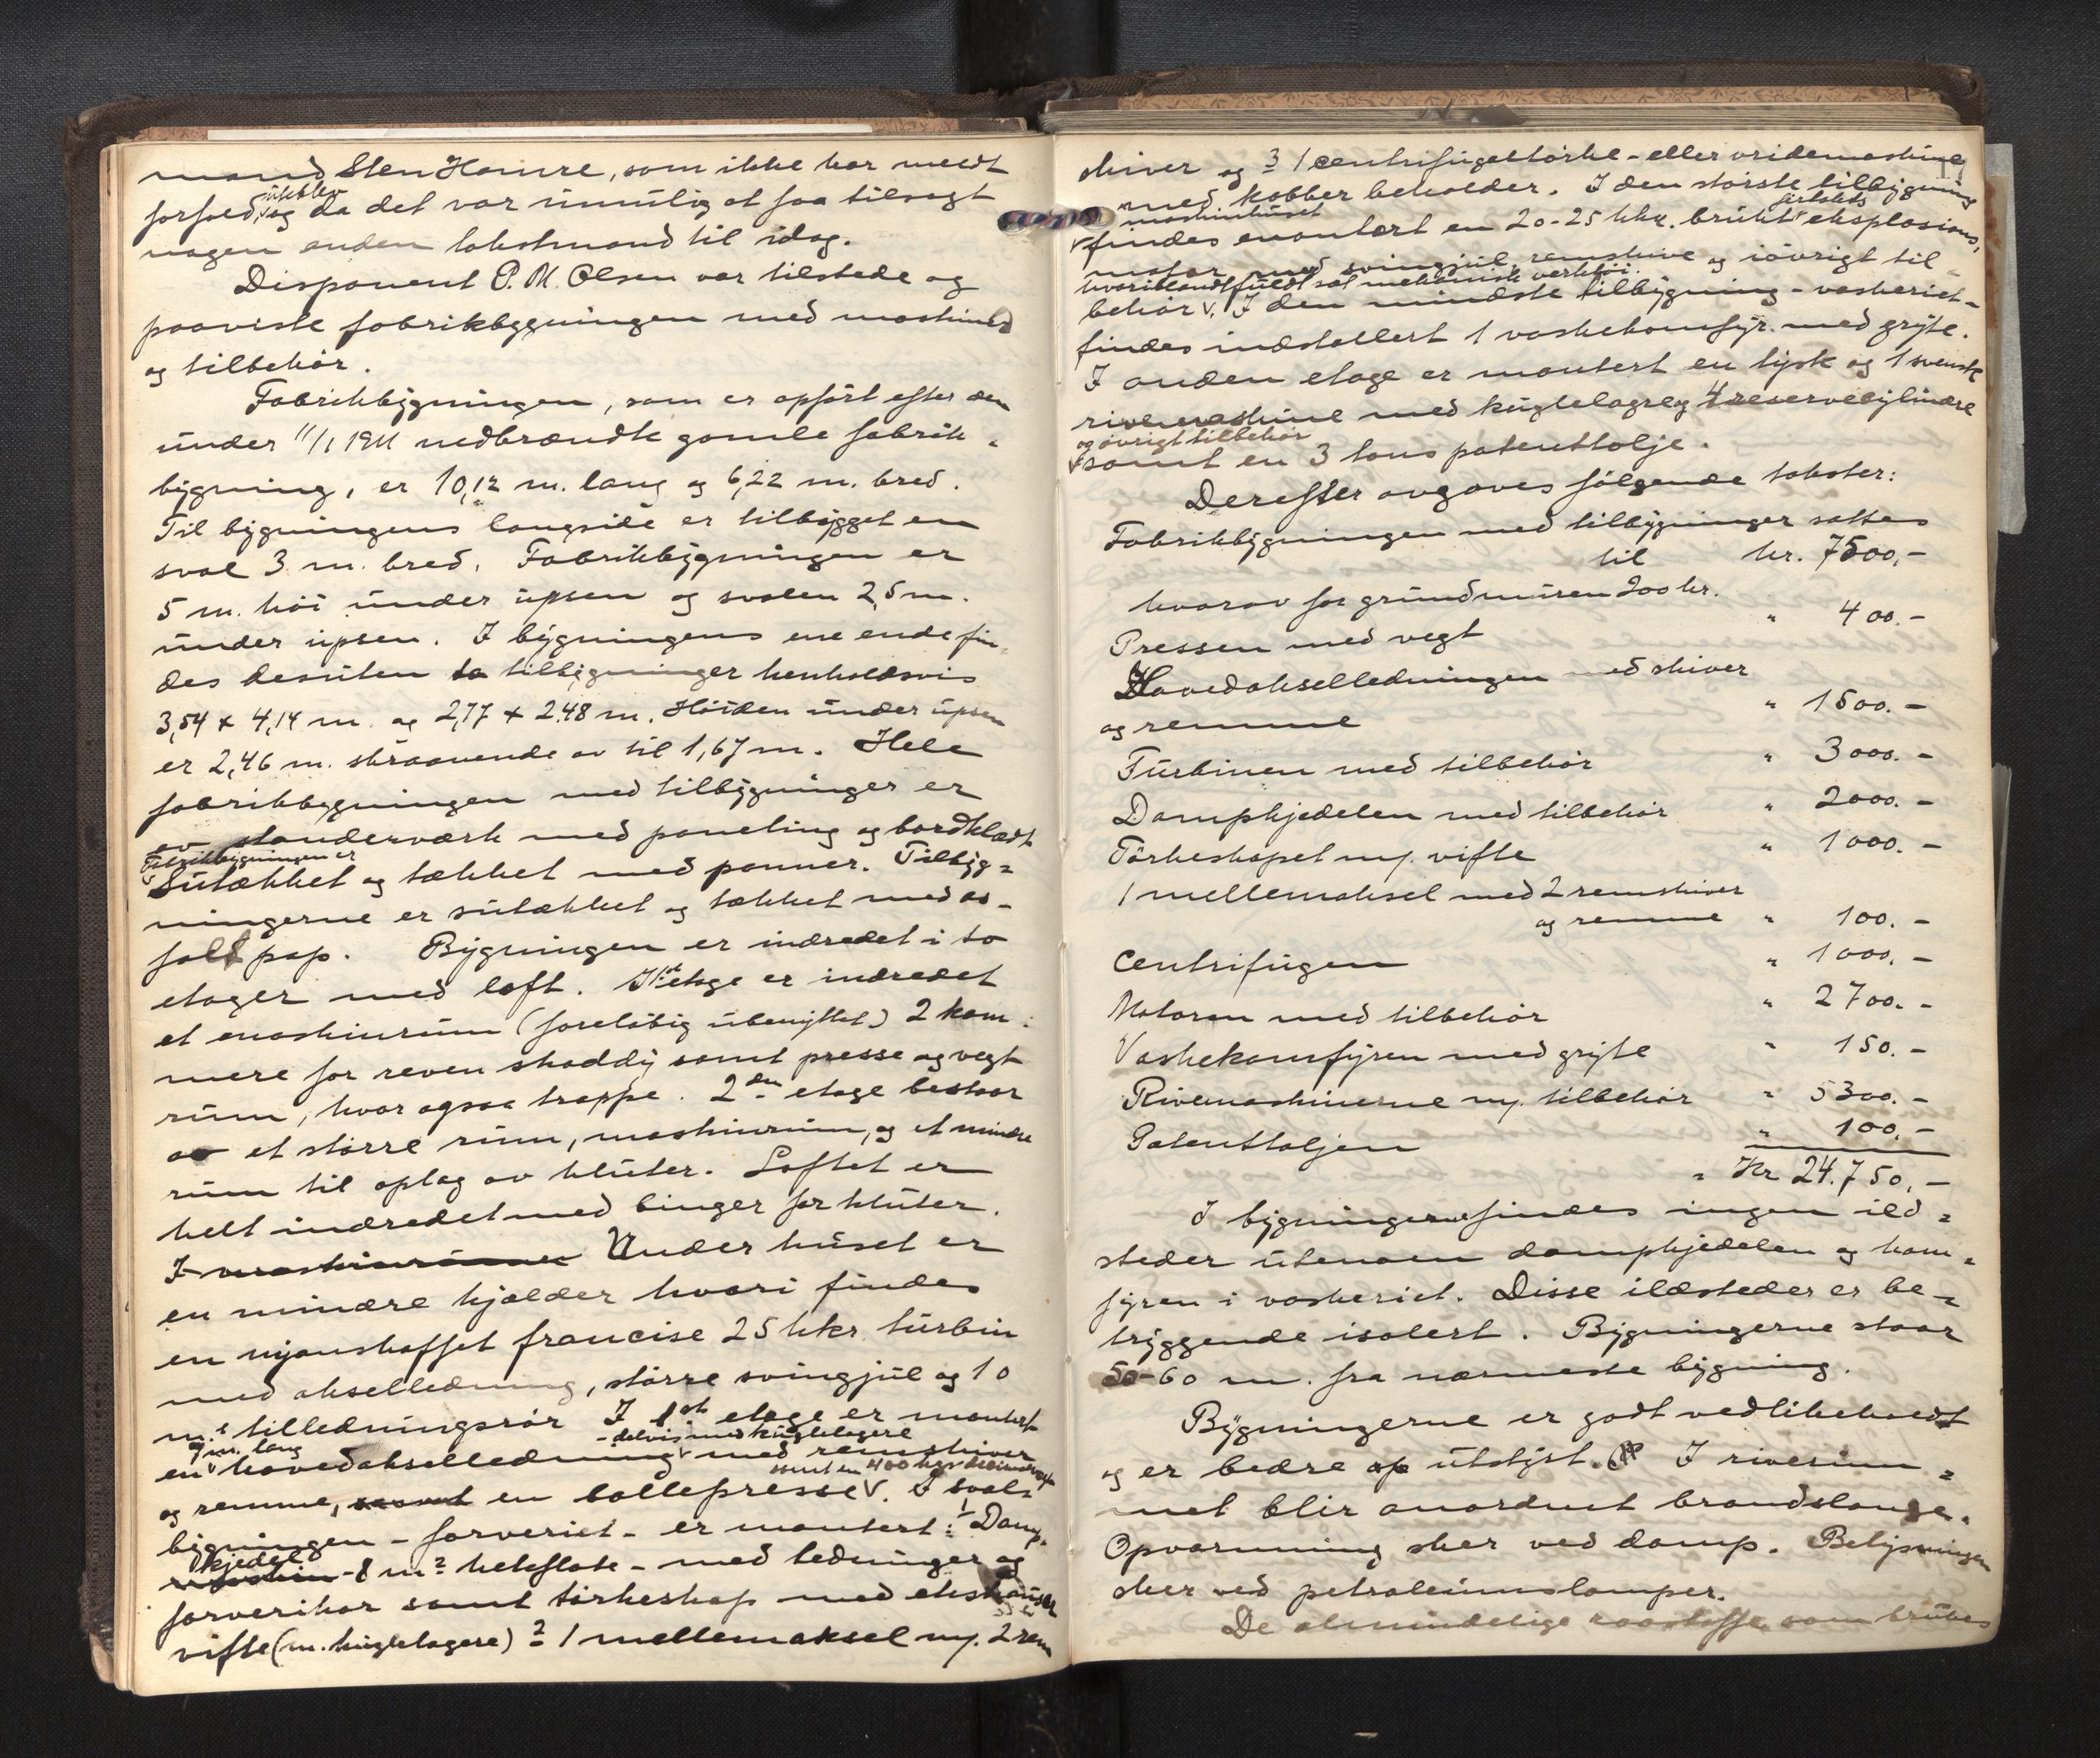 mand Sten Hamre, som ikke har meldt
uteblev
forfald, og da det var umulig at faa tilsagt
nogen anden takstmand til idag.
Disponent P. M. Olsen var tilstede og
paaviste fabrikbygningen med maskiner
og tilbehör.
Fabrikbygningen, som er opfört efter den
under 11/1 1911 nedbrændte gamle fabrik-
bygning, er 10,12 m. lang og 6,22 m. bred.
Til bygningens langside er tilbygget en
sval 3 m. bred. Fabrikbygningen er
5 m. höi under upsen og svalen 2,5 m.
under upsen. I bygningens ene ende fin-
des desuten to tilbygninger henholdsvis
3,54 x 4,14 m. og 2,77 x 2,48 m. Höiden under upsen
er 2,46 m. skraanende av til 1,67 m. Hele
fabrikbygningen med tilbygninger er
av standerværk med paneling og bordklædt
Fabrikbygningen er
Sutækket og tækket med panner. Tilbyg-
ningerne er sutækket og tækket med as-
falt pap. Bygningen er indredet i to
etager med loft. I 1st etage er indredet
et maskinrum (foreløbig ubenyttet) 2 kam-
mere for reven shoddy samt presse og vegt
rum, hvor ogsaa trappe. 2den etage bestaar
av et större rum, maskinrum, og et mindre
rum til oplag av kluter. Loftet er
helt indredet med binger for kluter.
I maskinrummet Under huset er
en mindre kjælder hvori findes
en nyanskaffet francise 25 hkr. turbin
med akselledning, större svingjul og 10
m.s tilledningsrör I 1st etage er montert
9 m. lang - delvis med kuglelagere
en hovedakselledning med remskiver
samt en 400 kgs decimalvegt
og remme, samt en ballepresse. I sval-
bygningen - farveriet - er montert: 1 Damp-
kjedel
maskin - 8 m² heteflate - med ledninger og
farverikar samt törkeskap med ekshaustor
vifte (m. kuglelagere) 2 1 mellemaksel m/. 2 rem
skiver og 3 1 centrifugeltörke- eller vridemaskine
med kobber beholder. I den störste tilbygning
maskinhuset
findes montert en 20-25 hkr. brukt eksplosions-
motor med svingjul, remskive og iövrigt til-
hvoriblandt fuldt sæt mekanisk verktöi.
behör. I den mindste tilbygning - vaskeriet -
findes indstallert 1 vaskekomfyr. med gryte.
I anden etage er montert en tysk og 1 svensk
rivemaskine med kuglelagre og 4 reservecylindre
og övrigt tilbehör
samt en 3 tons patenttalje.
Derefter avgaves fölgende takster:
Fabrikbygningen med tilbygninger sattes
til kr. 7500,-
hvorav for grundmuren 200 kr.
Pressen med vegt " 400.-
Hovedakselledningen med skiver
og remme " 1500.-
Turbinen med tilbehör " 3000.-
Dampkjedelen med tilbehör " 2000.-
Törkeskapet m/. vifte " 1000.-
1 mellemaksel med 2 remskiver
og remme " 100.-
Centrifugen " 1000.-
Motoren med tilbehör " 2700.-
Vaskekomfyren med gryte " 150.-
Rivemaskinerne m/. tilbehör " 5300.-
Patenttaljen " 100.-
" Kr 24.750,-
I bygningerne findes ingen ild-
steder utenom dampkjedelen og kom-
fyren i vaskeriet. Disse ildsteder er be-
tryggende isolert. Bygningerne staar
50-60 m. fra nærmeste bygning.
Bygningerne er godt vedlikeholdt
og er bedre op utstyrt. I riverum-
met blir anordnet brandslange.
Opvarmning sker ved damp. Belysningen
sker ved petroleumslamper.
De almindelige raastoffe som brukes